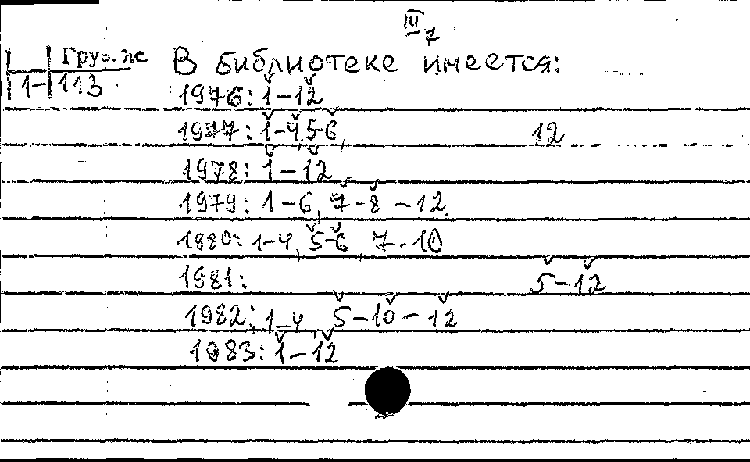 III 7
Груз. же В библиотеке имеется:
1-113
1976: 1-12
1977: 1-4, 5-6, 12
1978: 1-12
1979: 1-6, 7-8-12
1980: 1-4, 5-6, 7-10
1981: 5-12
1982: 1-4, 5-10-12
1983: 1-12